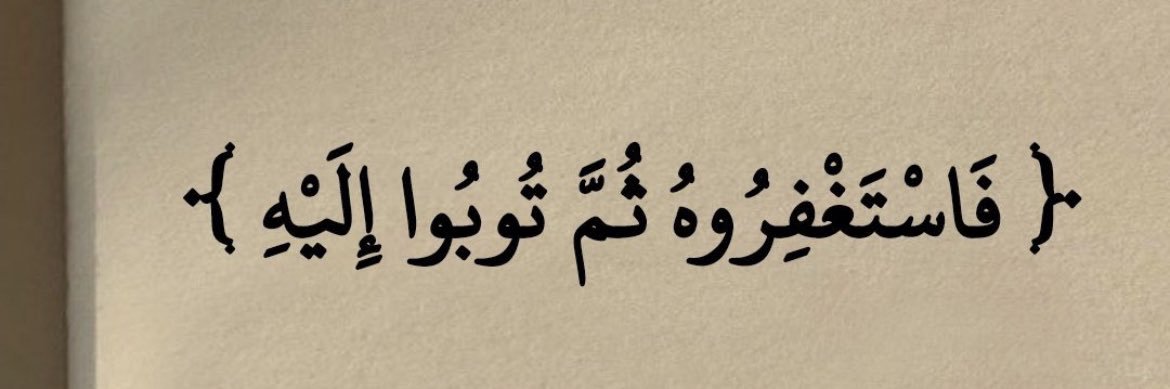 ﴿ فَاسْتَغْفِرُوهُ ثُمَّ تُوبُوا إِلَيْهِ ﴾